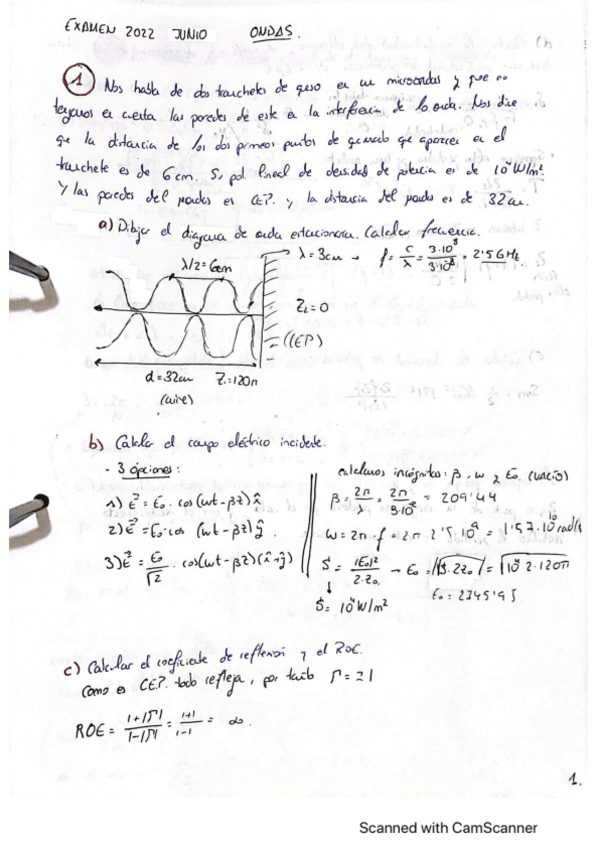 EXAMEN 2022 JUNIO ONDAS.
1 Nos habla de dos tranchetes de queso en un microondas y que no
tengamos en cuenta las paredes de este en la interferencia de la onda. Nos dice
que la distancia de los dos primeros puntos de quemado que aparecen en el
tranchete es de 6cm. Su pot lineal de densidad de potencia es de 10⁴W/m².
Y las paredes del mondas es CEP. y la distancia del mondas es de 32cm.
a) Dibujar el diagrama de onda estacionaria. Calcular frecuencia.
λ/2 = 6cm
λ = 3cm → f = c/λ = 3·10⁸/3·10⁻² = 2'5 GHz
Z_L = 0
(CEP)
d = 32cm Z₁ = 120π
(aire)
b) Calcular el campo eléctrico incidente.
- 3 opciones:
1) E = E₀ · cos(wt - βz) x̂
2) E = E₀ · cos (wt - βz) ŷ
3) E = E₀/√2 · cos(wt - βz)(x̂ + ŷ)
calculamos incógnitas: β, w y E₀ (VACÍO)
β = 2π/λ = 2π/3·10⁻² = 209'44
w = 2π · f = 2π · 2'5·10⁹ = 1'57·10¹⁰ rad/s
S = |E₀|²/2·Z₀ → E₀ = √|S|·2Z₀ = √10⁴·2·120π
S = 10⁴W/m²
E₀ = 2745'95
c) Calcular el coeficiente de reflexión y el ROE.
Como es CEP. todo refleja, por tanto Γ = -1
ROE = 1+|Γ|/1-|Γ| = 1+1/1-1 = ∞.
1.
Scanned with CamScanner